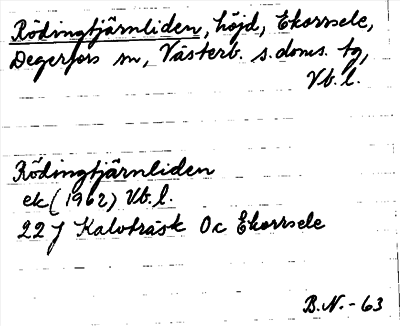 Rödingtjärnliden, höjd, Ekorrsele,
Degerfors sn, Västerb. s. doms. tg,
Vb. l.
Rödingtjärnliden
ek (1962) Vb. l.
22 J Kalvträsk Oc Ekorrsele
B.N. - 63